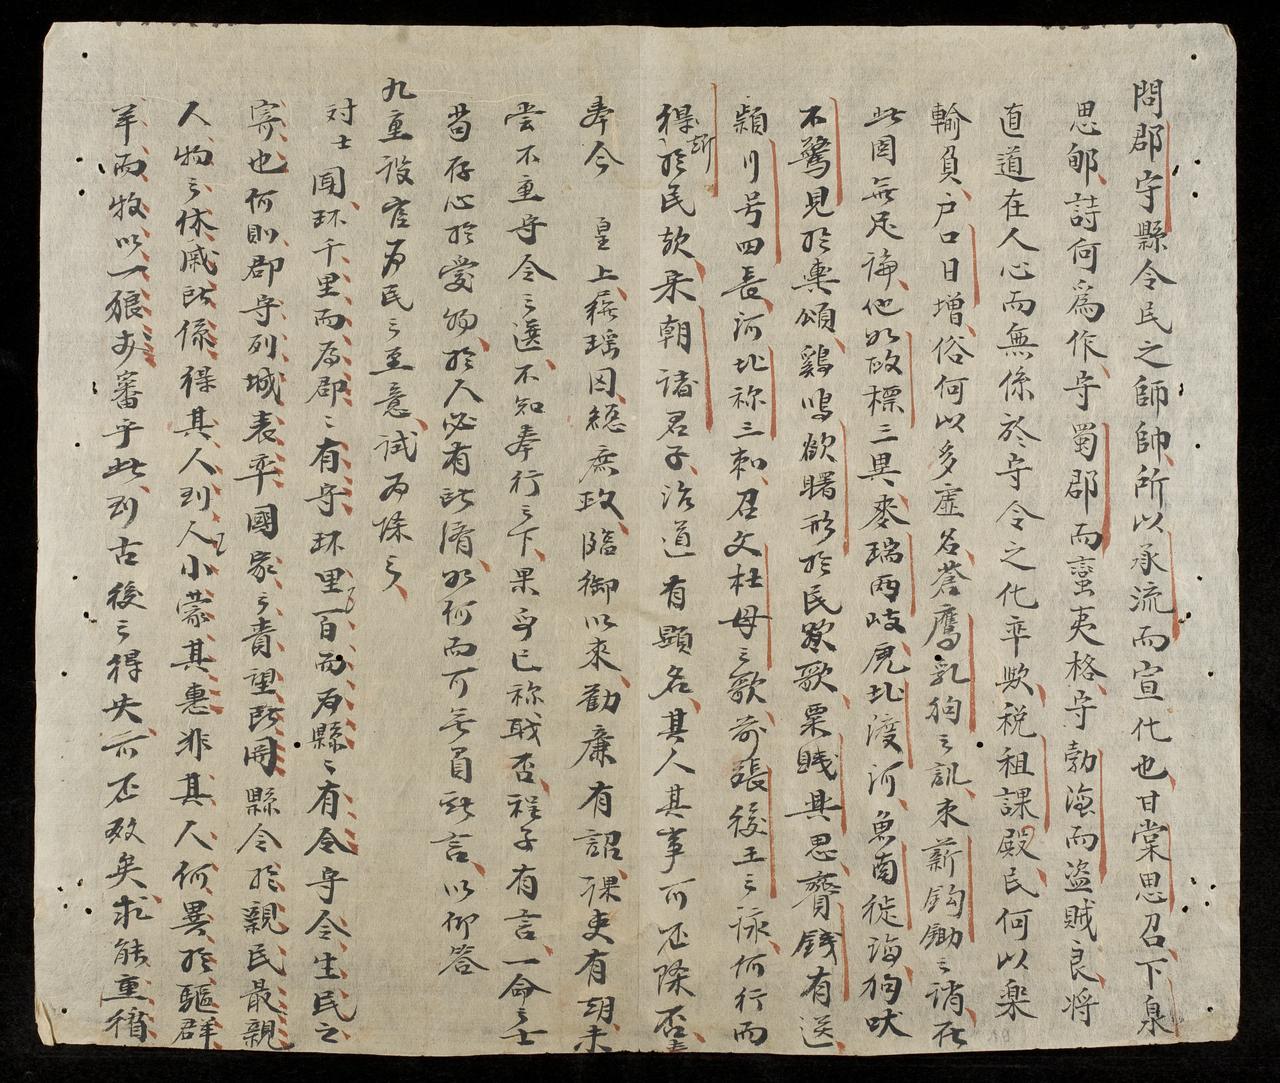 問郡守縣令民之師帥所以承流而宣化也甘棠思召下泉
思郇詩何爲作守蜀郡而蠻夷格守勃海而盜賊良将
直道在人心而無係於守令之化率欤税租課殿民何以楽
輸負戸口日增俗何以多虚名蒼鷹乳狗之訊束薪鈎鋤之誚在
此固無足論他如政標三異麥瑞两岐虎北渡河魚南徙海狗吠
不驚見於輿頌鷄鳴欲曙形於民歌粟賤興思賫錢有送
頴川号四長河北祢三刺召父杜母之歌前張後王之詠何行而
得斯於民欤宋朝諸君子治道有顕名其人其事可历陈否
奉今　皇上蕤瑶因緦庶政臨御以來勸廉有詔課吏有期未
尝不重守令之選不知奉行之下果可已祢职否程子有言一命之士
苟存心於爱物於人必有所濟如何而可無負所言以仰答
九重設官为民之至意試为陈之
対士闻环千里而为郡〻有守环里百而为縣〻有令守令生民之
寄也何則郡守列城表率國家之責望所関縣令於親民最親
人物之休戚所係得其人則人小蒙其惠非其人何異於驅群
羊而牧以一狼哉審乎此則古後之得失可历数矣求能重稽